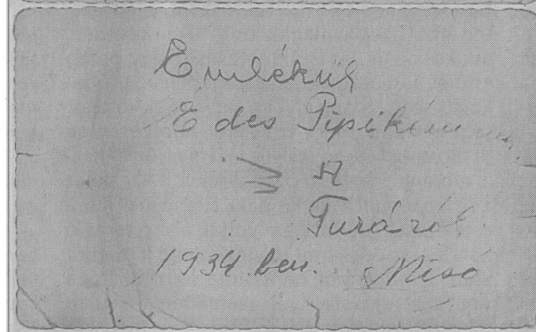 Emlékül
Édes Pipikém
A
Turáról
1934 ben. Misó